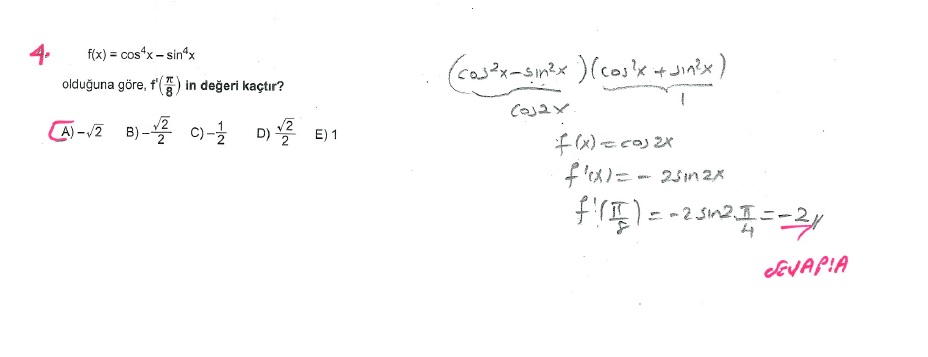 4.
f(x) = cos⁴x – sin⁴x
olduğuna göre, f'(π/8) in değeri kaçtır?
A) –√2 B) –√2/2 C) –1/2 D) √2/2 E) 1
(cos²x – sin²x)(cos²x + sin²x)
cos2x 1
f(x) = cos 2x
f'(x) = – 2sin2x
f'(π/8) = –2 sin2.π/4 = –2//
CEVAP:A